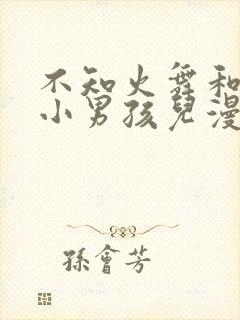 不知火舞和
小男孩兒漫
孫會芳